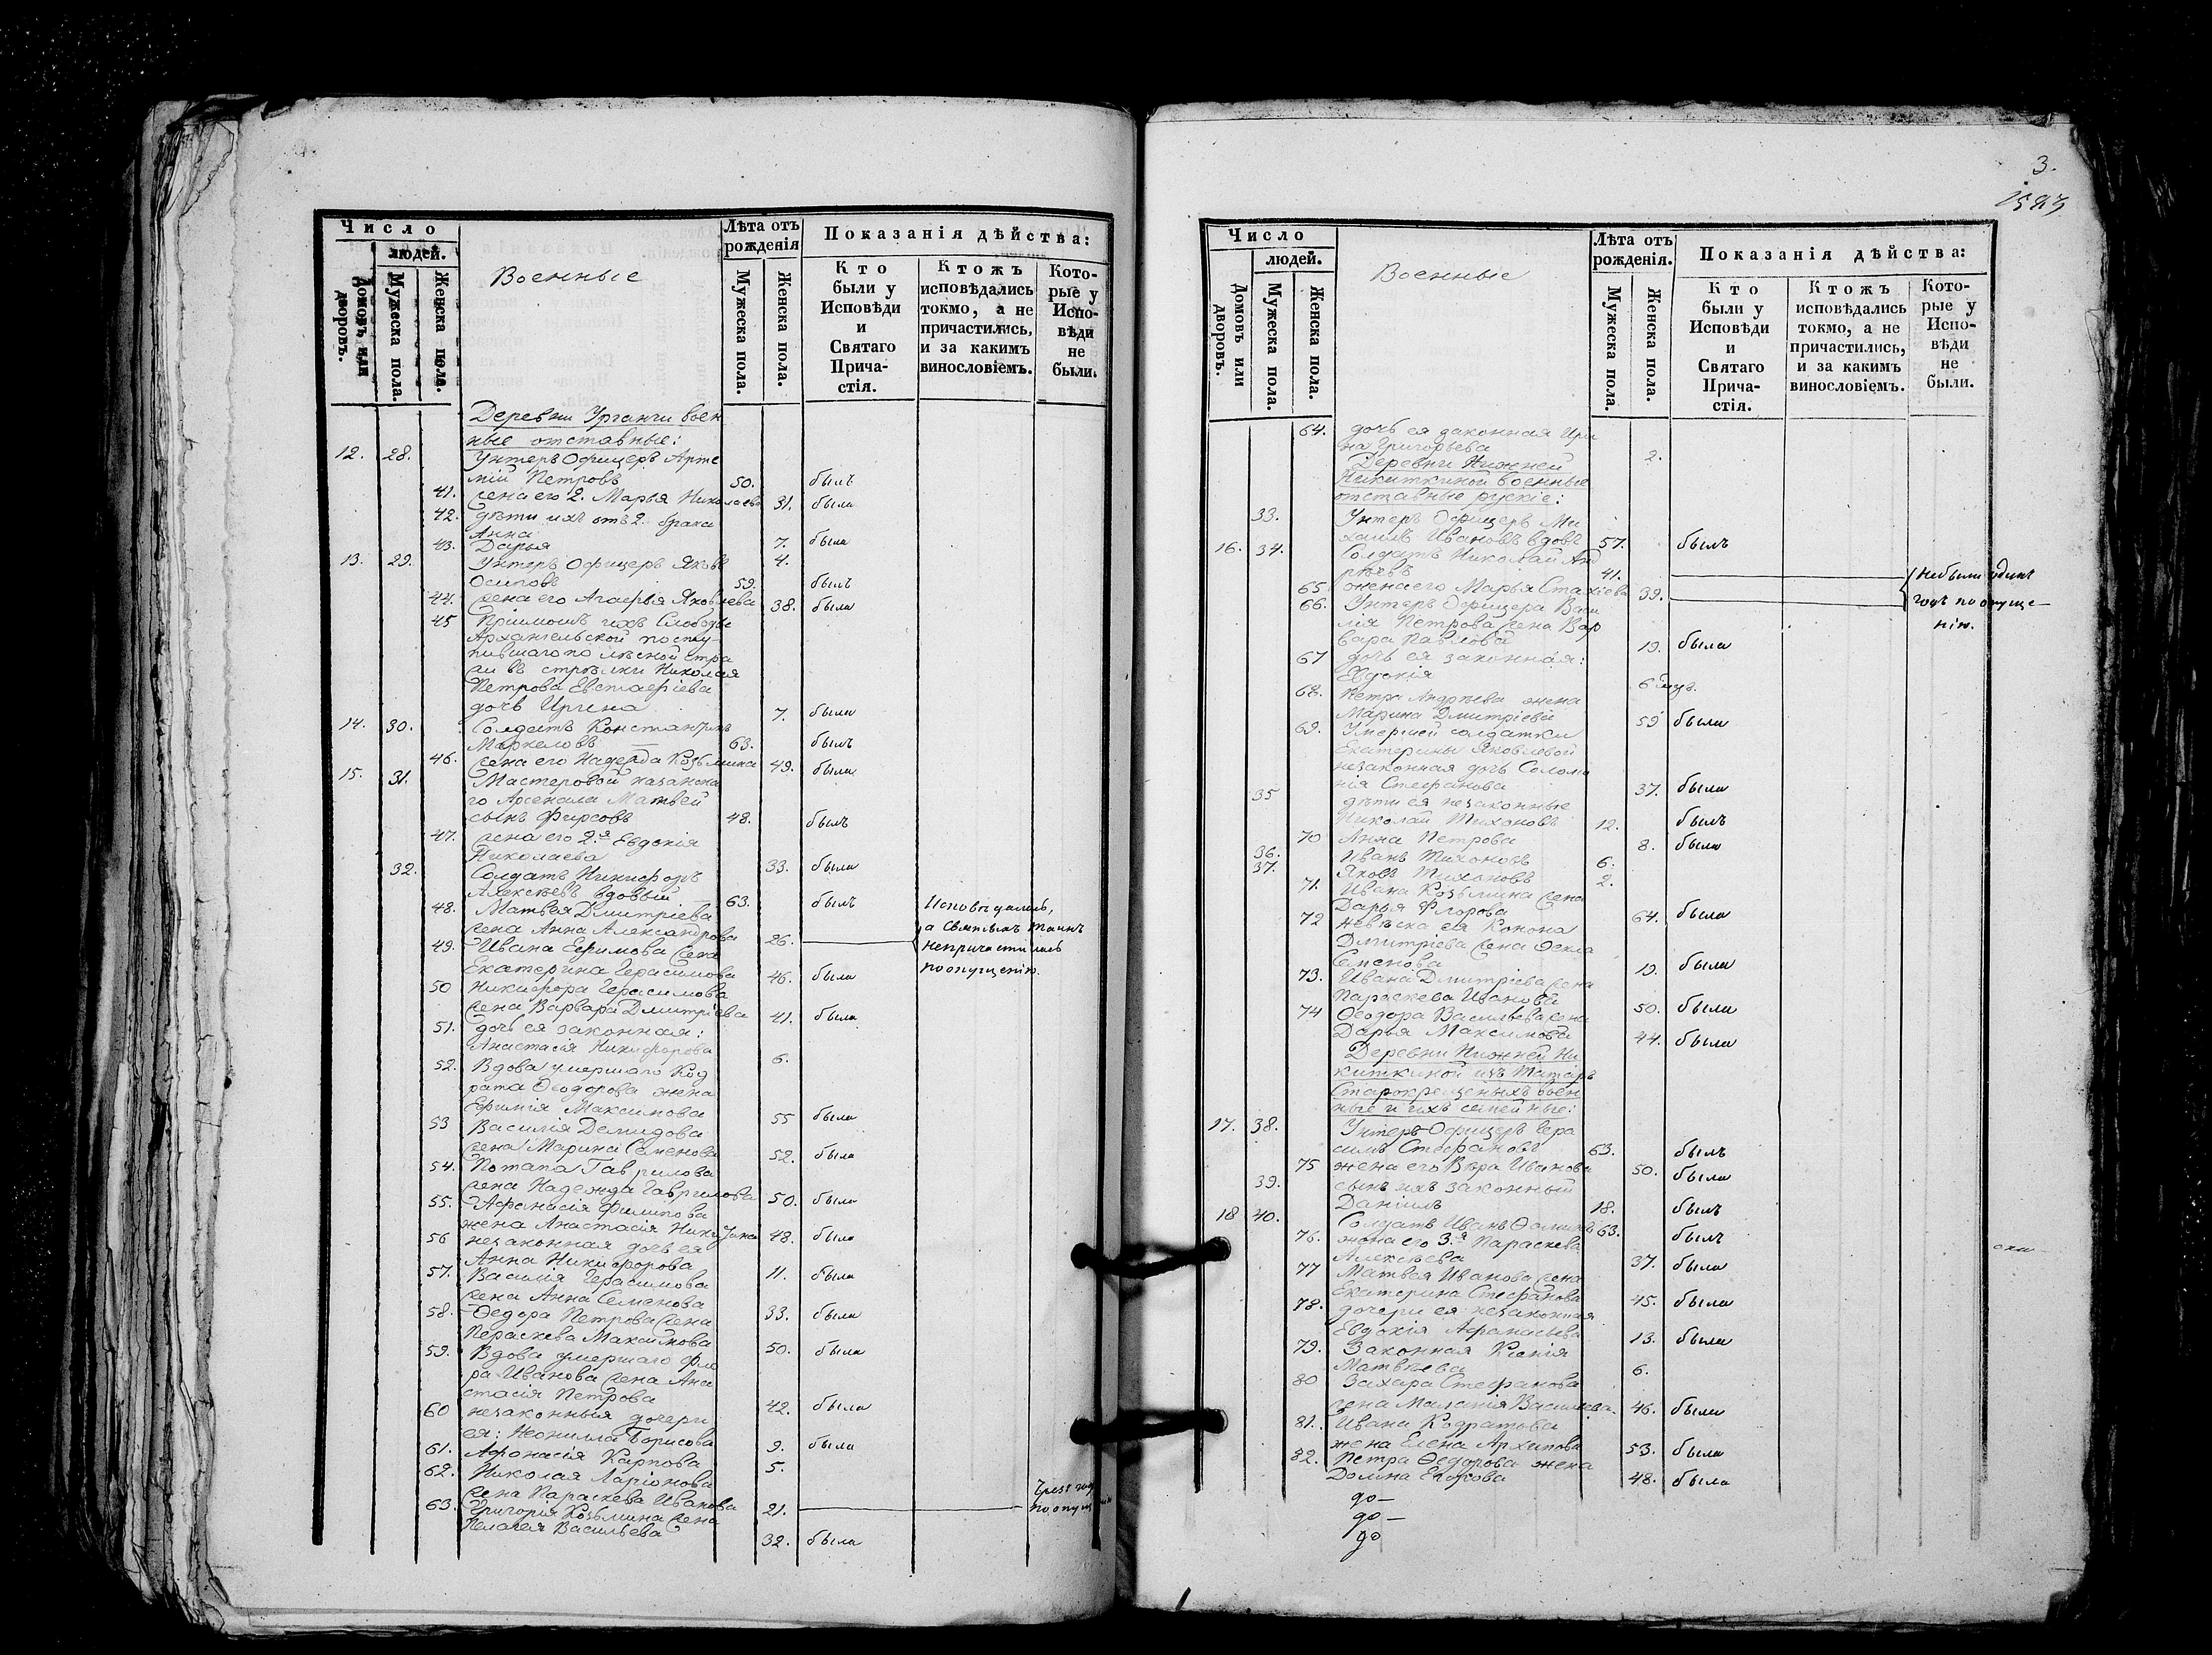 Число
людей.
Домовъ или дворовъ.
Мужеска пола.
Женска пола.
Военные
Лѣта отъ рожденія
Мужеска пола.
Женска пола.
Показанія дѣйства:
Кто были у Исповѣди и Святаго Прича-стія.
Ктожъ исповѣдались токмо, а не причастились, и за какимъ винословіемъ.
Кото-рые у Испо-вѣди не были.
Деревни Урганчи воен
ные отставные:
12. 28. Унтеръ Офицеръ Арте
мій Петровъ 50. былъ
41. жена его 2. Марья Николаева 31. была
42. дѣти ихъ отъ 2. брака
Анна 7. была
43. Дарья 4.
13. 29. Унтеръ Офицеръ Яковъ
Осиповъ 59. былъ
44. жена его Агафья Яковлева 38. была
45 Пріимошъ ихъ Слободы
Архангельской посту-
пившаго по лѣсной стра
жи въ стрѣлки Николая
Петрова Евстафіева
дочь Ирина 7. была
14. 30. Солдатъ Константинъ
Маркеловъ 63. былъ
46. жена его Надежда Козьмина 49. была
15. 31. Мастеровой казанска
го Арсенала Матвей
сынъ Фирсовъ 48. былъ
47. жена его 2.я Евдокія
Николаева 33. была
32. Солдатъ Никифоръ
Алексѣевъ вдовый 63. былъ
48. Матвея Дмитріева
жена Анна Александрова 26.
Исповѣдались,
а Святыхъ Таинъ
непричастилась
по опущенію.
49. Ивана Ефимова жена
Екатерина Герасимова 46. была
50 Никифора Герасимова
жена Варвара Дмитріева 41. была
51. дочь ея законная:
Анастасія Никифорова 6.
52. Вдова умершаго Код
рата Ѳеодорова жена
Ефимія Максимова 55 была
53 Василія Демидова
жена Марина Семенова 52. была
54. Потапа Гаврилова
жена Надежда Гаврилова 50. была
55. Афанасія Филипова
жена Анастасія 48. была
56 незаконная дочь ея
Анна Никифорова 11. была
57. Василія Герасимова
жена Анна Семенова 33. была
58. Ѳедора Петрова жена
Параскева Максимова 50. была
59. Вдова умершаго Фло
ра Иванова жена Ана
стасія Петрова 42. была
60 незаконныя дочери
ея: Неонилла Борисова 9. была
61. Афонасія Карпова 5.
62. Николая Ларіонова
жена Параскева Иванова 21. по опущенію
63. Григорія Козьмина жена
Пелагея Васильева 32. была
3.
1523
Число
людей.
Домовъ или дворовъ.
Мужеска пола.
Женска пола.
Военные
Лѣта отъ рожденія.
Мужеска пола.
Женска пола.
Показанія дѣйства:
Кто были у Исповѣди и Святаго Прича-стія.
Ктожъ исповѣдались токмо, а не причастились, и за какимъ винословіемъ.
Кото-рые у Испо-вѣди не были.
64. дочь ея законная Ири
на Григорьева 2.
Деревни Нижней
Никиткиной военные
отставные рускіе:
33. Унтеръ Офицеръ Ми
хаилъ Ивановъ вдовъ 57. былъ
16. 34. Солдатъ Николай Анд
рѣевъ 41.
65. жена его Марья Стахіева 39.
Небыли одинъ
годъ по опуще-
нію.
66. Унтеръ Офицера Васи
лія Петрова жена Вар
вара Павлова 19. была
67 дочь ея законная:
Евдокія 6 мцъ.
68. Петра Андрѣева жена
Марина Дмитріева 59 была
69. Умершей солдатки
Екатерины Яковлевой
незаконная дочь Солома
нія Стефанова 37. была
35 дѣти ея незаконные
Николай Тихоновъ 12. былъ
70 Анна Петрова 8. была
36. Иванъ Тихоновъ 6.
37. Яковъ Тихоновъ 2.
71. Ивана Козьмина жена
Дарья Флорова 64. была
72 невѣска ея Конона
Дмитріева жена Ѳекла
Семенова 19. была
73. Ивана Дмитріева жена
Параскева Иванова 50. была
74 Ѳеодора Васильева жена
Дарья Максимова 44. была
Деревни Нижней Ни
киткиной изъ Татаръ
Старокрещеныхъ воен
ные и ихъ семейные:
17. 38. Унтеръ-Офицеръ Гера
симъ Стефановъ 63. былъ
75 жена его Вѣра Иванова 50. была
39. сынъ ихъ законный
Даніилъ 18. былъ
18 40. Солдатъ Иванъ Ѳоминъ 63. былъ
76. жена его 3.я Параскева
Алексѣева 37. была
77 Матвея Иванова жена
Екатерина Стефанова 45. была
78. дочери ея незаконная
Евдокія Афанасьева 13. была
79. Законная Ксенія
Матвѣева 6.
80 Захара Стефанова
жена Маланія Васильева. 46. была
81. Ивана Кодратова
жена Елена Архипова 53. была
82. Петра Ѳедорова жена
Домна Егорова 48. была
до—
до—
до